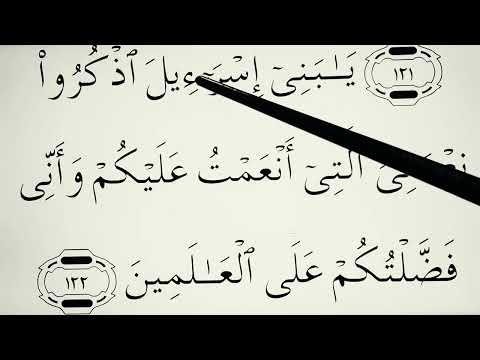 ١٢١ يَـٰبَنِىٓ إِسْرَٰٓءِيلَ ٱذْكُرُوا۟
ٱلَّتِىٓ أَنْعَمْتُ عَلَيْكُمْ وَأَنِّى
فَضَّلْتُكُمْ عَلَى ٱلْعَـٰلَمِينَ ١٢٢